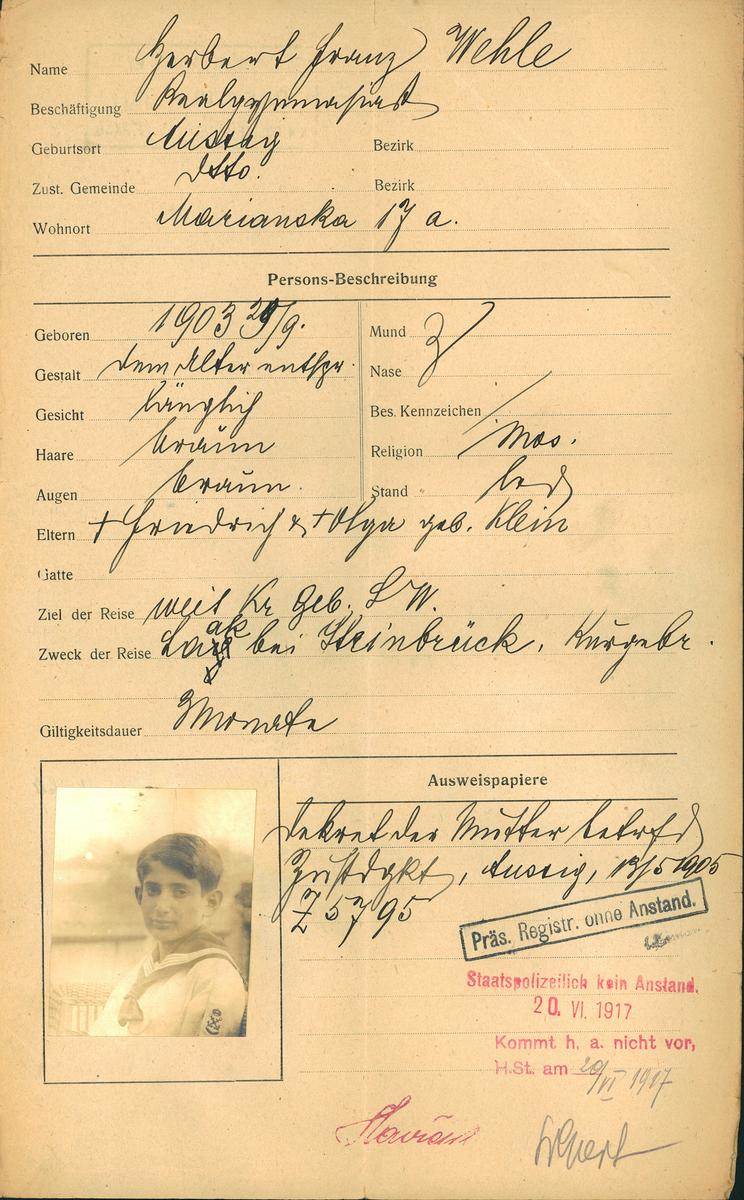 Name Herbert Franz Wehle
Beschäftigung Realgymnasiast
Geburtsort Aussig Bezirk
Zust. Gemeinde dtto. Bezirk
Wohnort Marianska 17 a.
Persons-Beschreibung
Geboren 1903 29/9. Mund
Gestalt dem Alter entspr. Nase
Gesicht länglich Bes. Kennzeichen /
Haare braun Religion mos.
Augen braun. Stand led
Eltern + Friedrich & + Olga geb. Klein
Gatte
Ziel der Reise weit Kr. Geb.
Zweck der Reise bei Steinbrück, Kurgebr.
Giltigkeitsdauer Monate
Ausweispapiere
Dekret der Mutter betrfd
Zustdgkt, Aussig, 13/5 1905
Z 5795
Präs. Registr. ohne Anstand.
Staatspolizeilich kein Anstand.
20. VI. 1917
Kommt h. a. nicht vor,
H.St. am 20/VI 1917